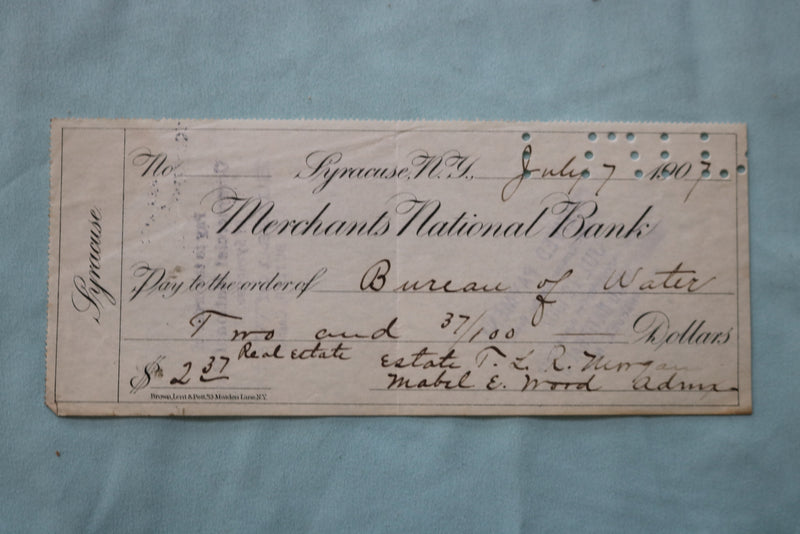 Syracuse
No. Syracuse, N.Y. July 7 1907.
Merchants National Bank
Pay to the order of Bureau of Water
Two and 37/100 Dollars
Real Estate Estate T. L. R. Morgan
$ 2 37 Mabel E. Wood Admx
Brown, Lent & Pett, 53 Maiden Lane, N.Y.